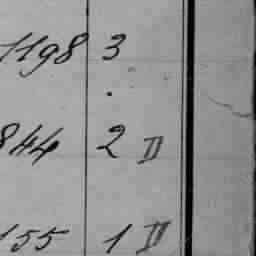 1198 3
844 2 II
155 1 III